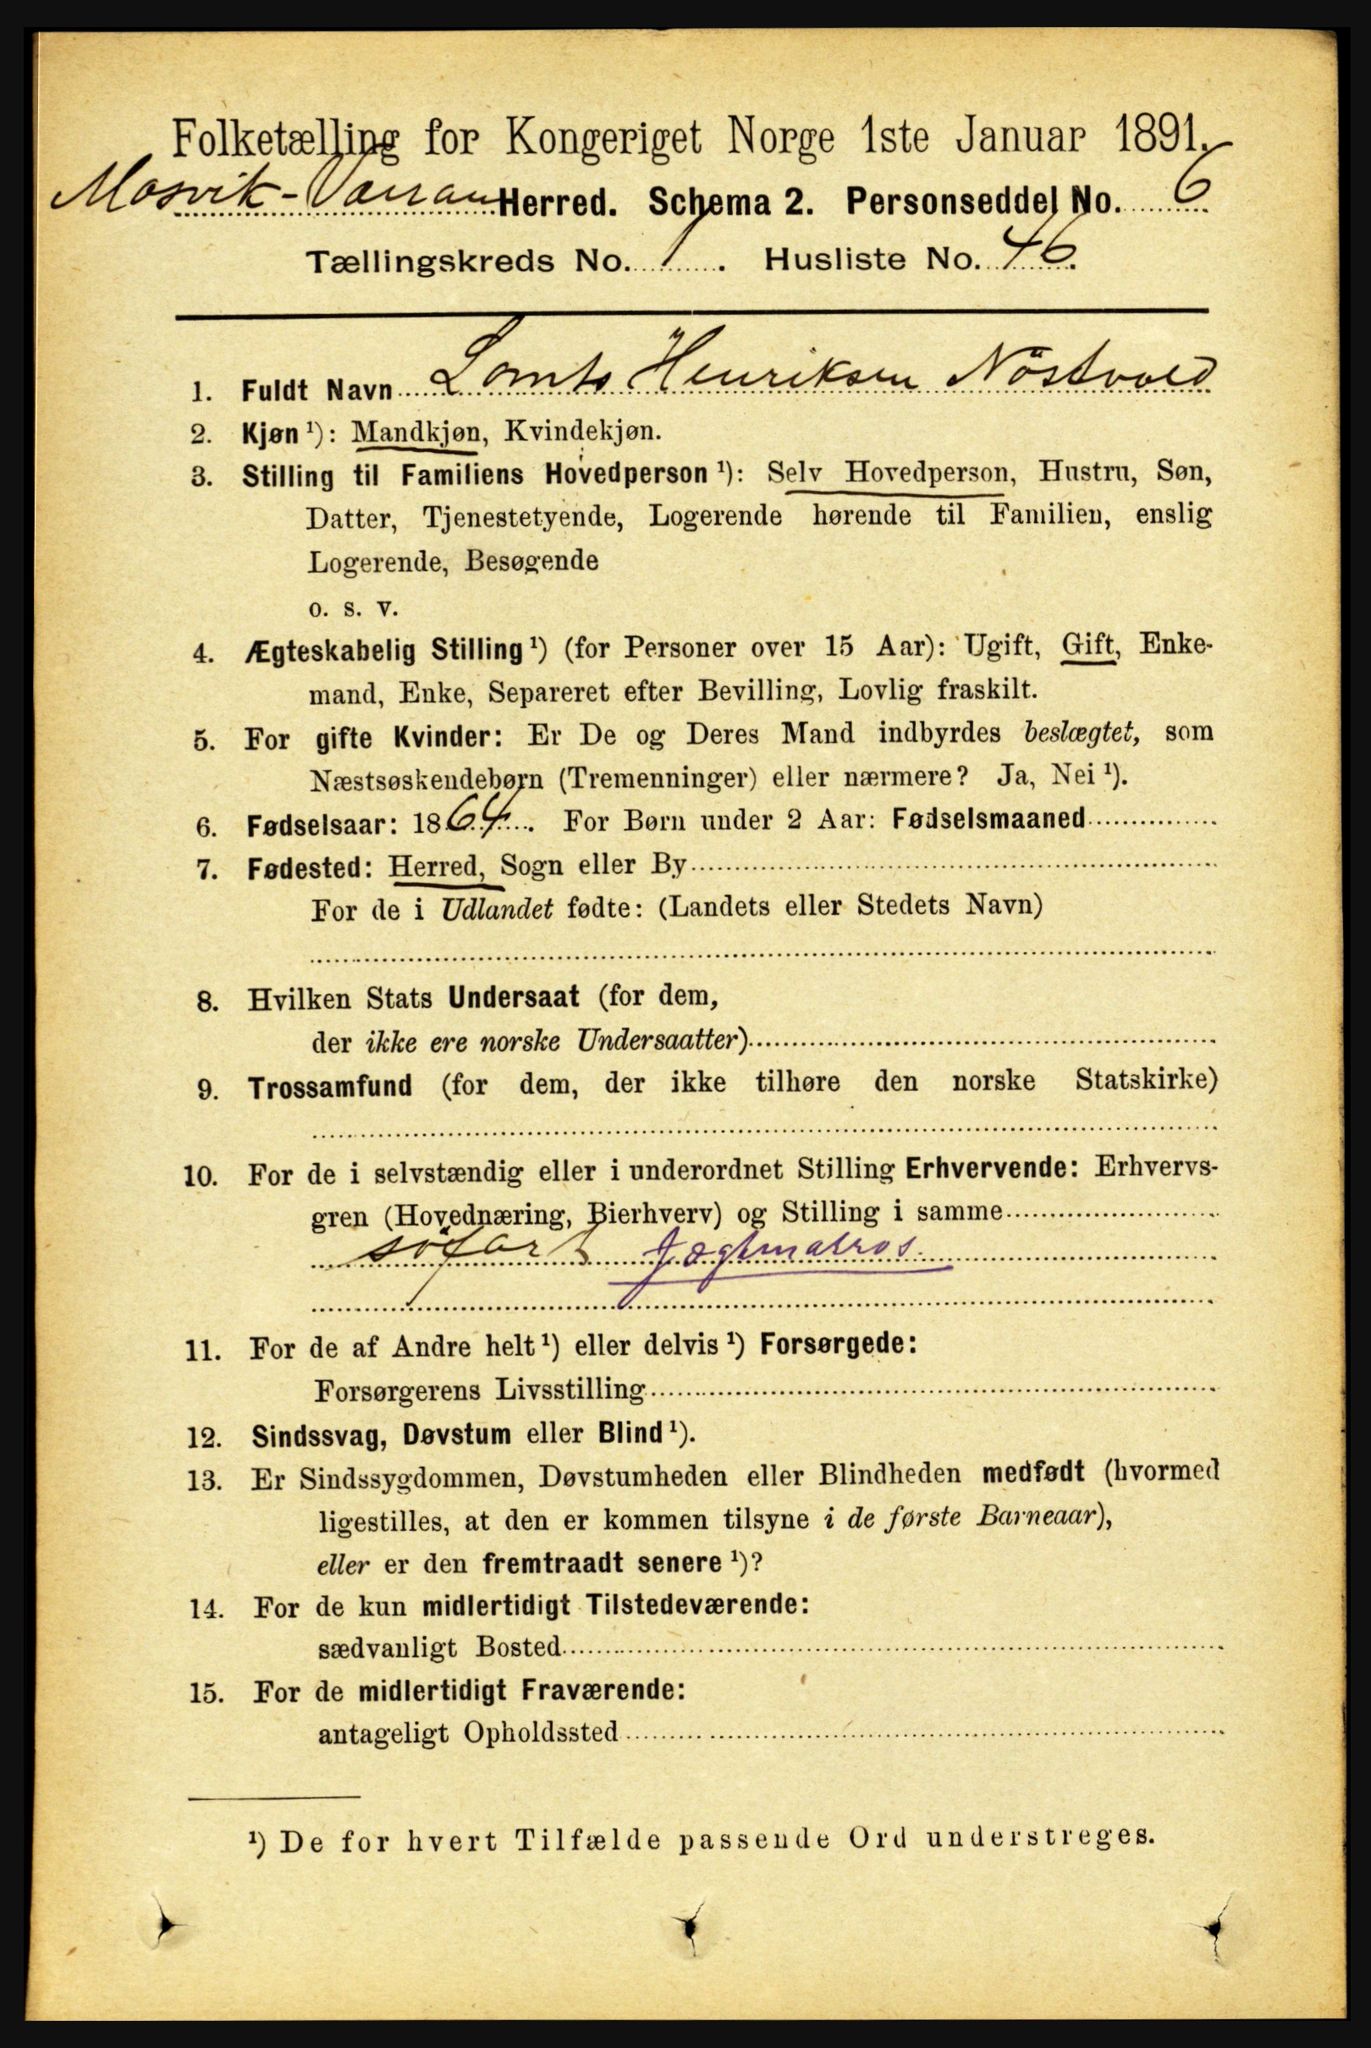 Folketælling for Kongeriget Norge 1ste Januar 1891.
Mosvik-Værran Herred. Schema 2. Personseddel No. 6
Tællingskreds No. 1. Husliste No. 46.
1. Fuldt Navn Henriksen Nöstvold
2. Kjøn ¹): Mandkjøn, Kvindekjøn.
3. Stilling til Familiens Hovedperson ¹): Selv Hovedperson, Hustru, Søn,
Datter, Tjenestetyende, Logerende hørende til Familien, enslig
Logerende, Besøgende
o. s. v.
4. Ægteskabelig Stilling ¹) (for Personer over 15 Aar): Ugift, Gift, Enke-
mand, Enke, Separeret efter Bevilling, Lovlig fraskilt.
5. For gifte Kvinder: Er De og Deres Mand indbyrdes beslægtet, som
Næstsøskendebørn (Tremenninger) eller nærmere? Ja, Nei ¹).
6. Fødselsaar: 1864. For Børn under 2 Aar: Fødselsmaaned
7. Fødested: Herred, Sogn eller By
For de i Udlandet fødte: (Landets eller Stedets Navn)
8. Hvilken Stats Undersaat (for dem,
der ikke ere norske Undersaatter)
9. Trossamfund (for dem, der ikke tilhøre den norske Statskirke)
10. For de i selvstændig eller i underordnet Stilling Erhvervende: Erhvervs-
gren (Hovednæring, Bierhverv) og Stilling i samme
söfart Jægtmatros.
11. For de af Andre helt ¹) eller delvis ¹) Forsørgede:
Forsørgerens Livsstilling
12. Sindssvag, Døvstum eller Blind ¹).
13. Er Sindssygdommen, Døvstumheden eller Blindheden medfødt (hvormed
ligestilles, at den er kommen tilsyne i de første Barneaar),
eller er den fremtraadt senere ¹)?
14. For de kun midlertidigt Tilstedeværende:
sædvanligt Bosted
15. For de midlertidigt Fraværende:
antageligt Opholdssted
¹) De for hvert Tilfælde passende Ord understreges.